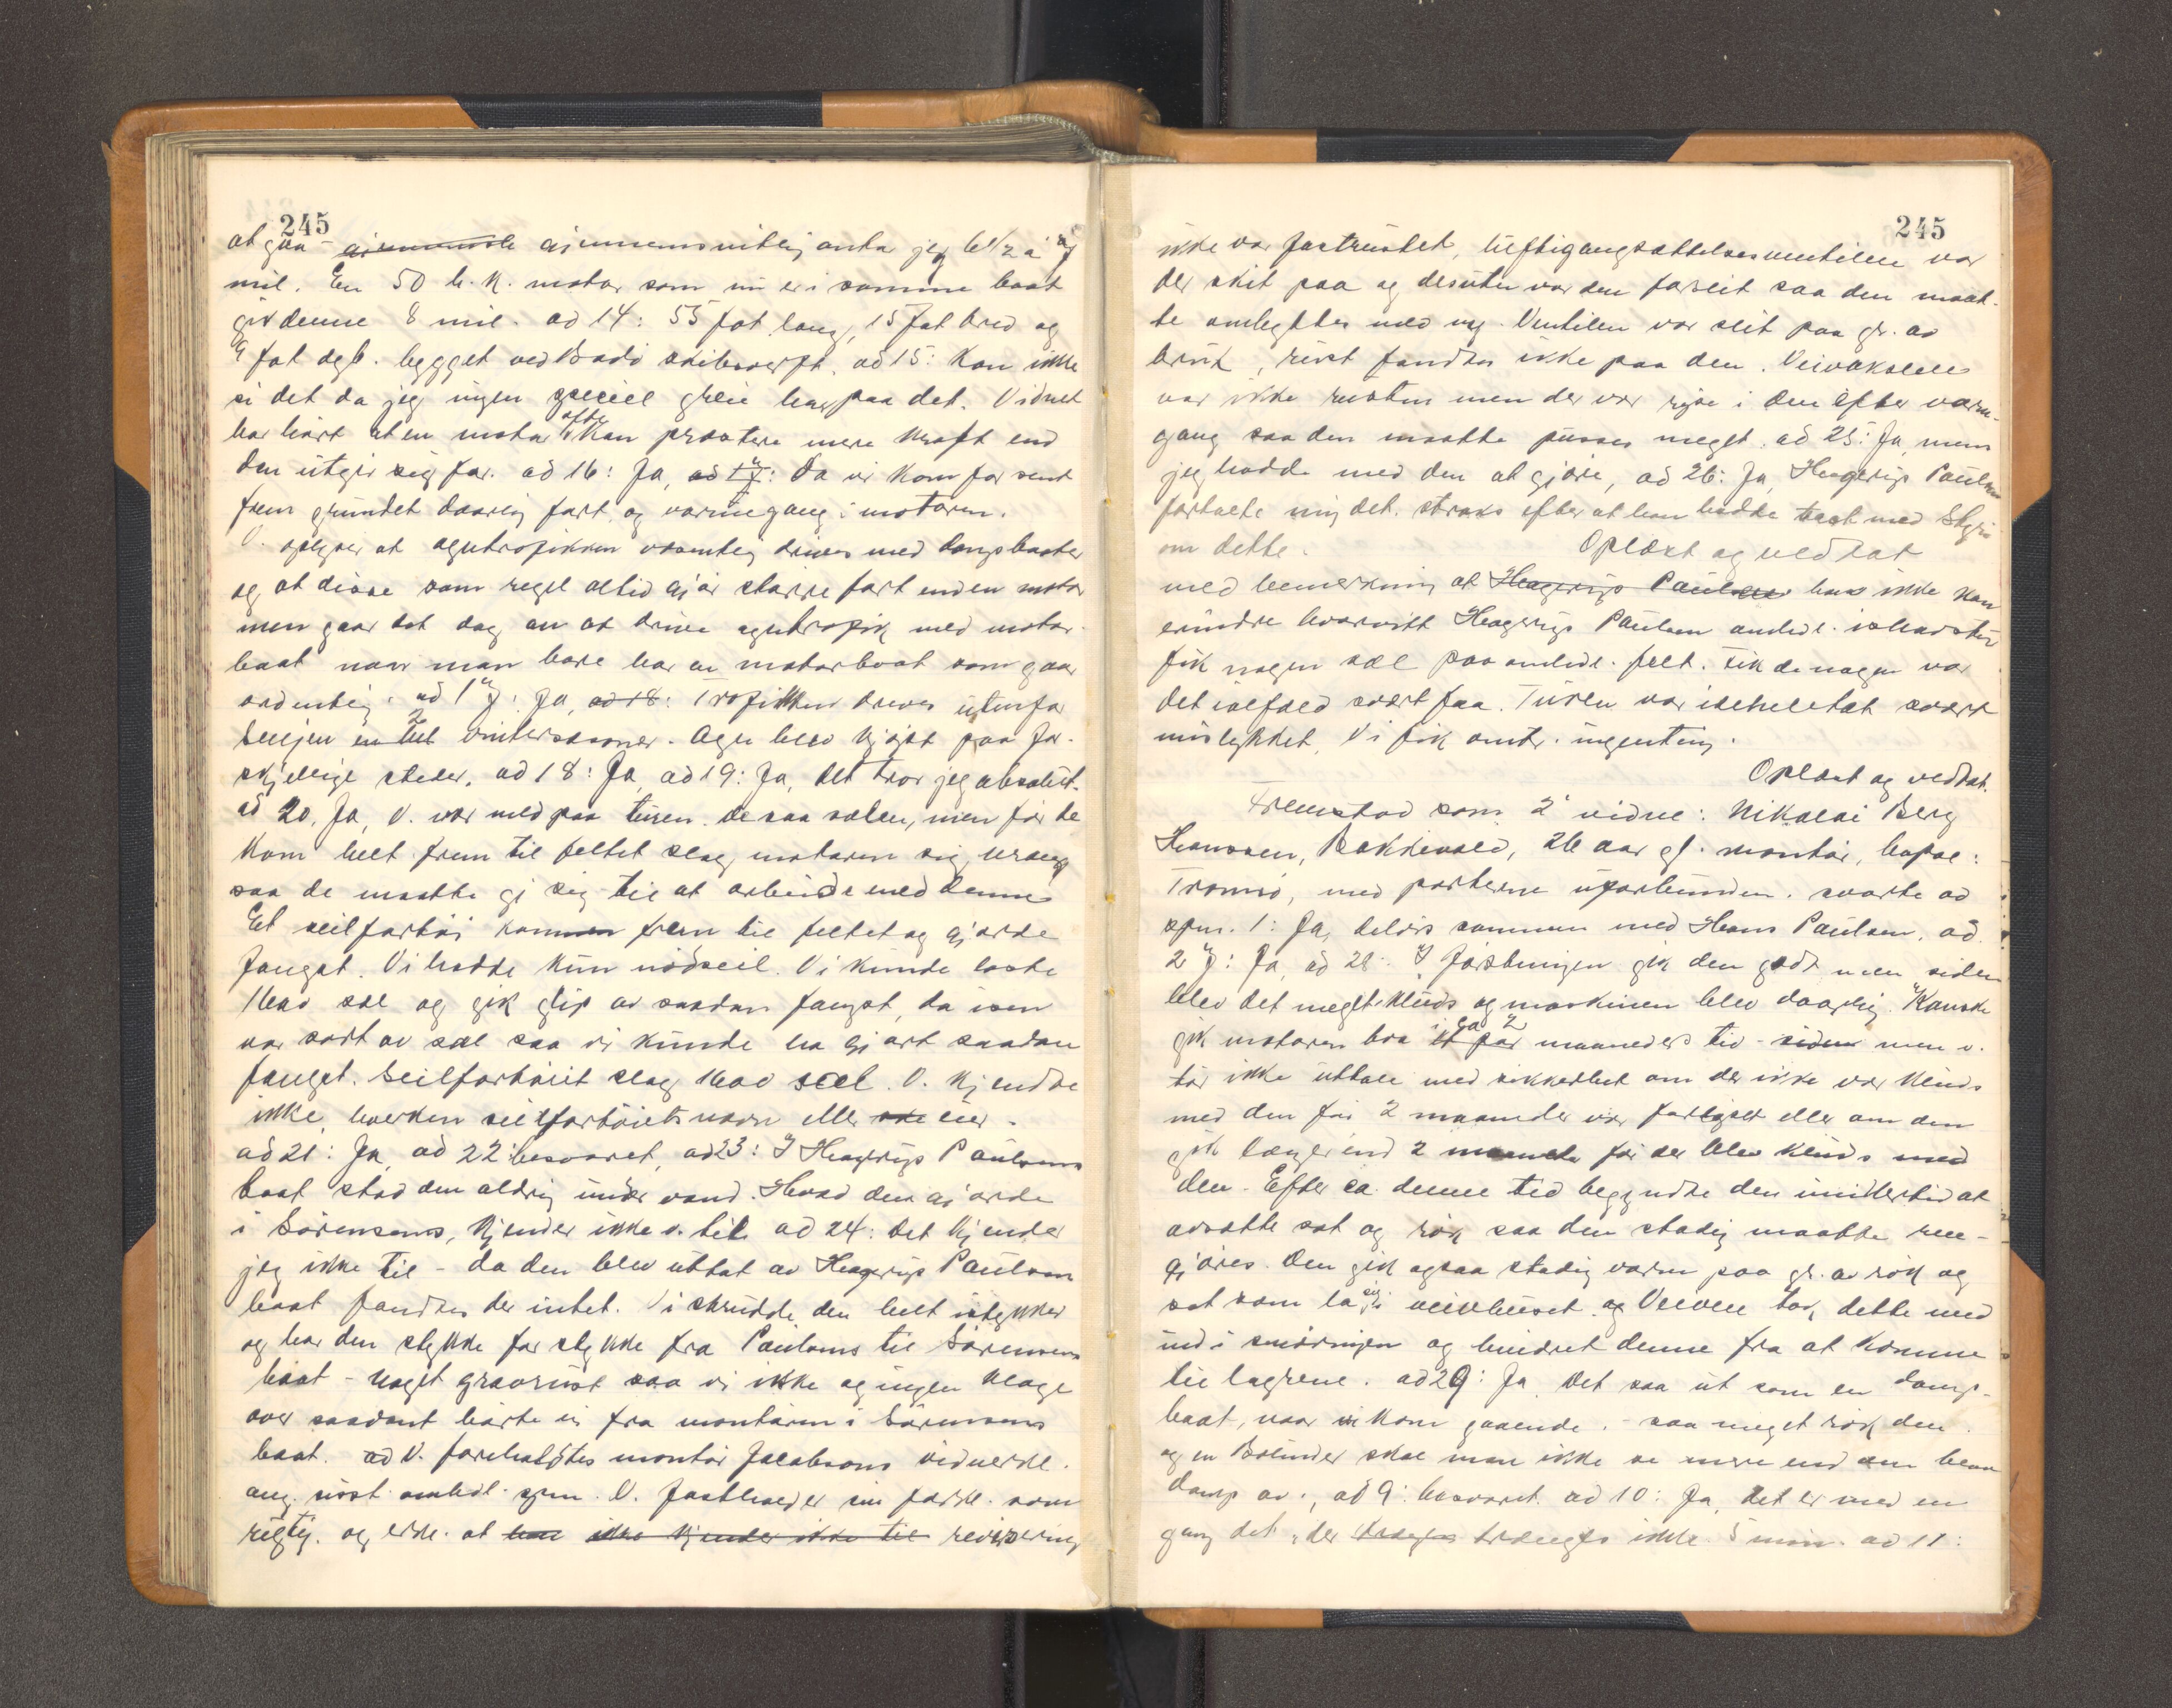 245
at gaa - gjennemsnitlig antar jeg 6 1/2 à 7
mil. En 50 h.k. motor som nu er i samme baat
gir denne 8 mil. ad 14: 55 fot lang, 15 fot bred og
9 fot dyb. bygget ved Bodö skibsverft. ad 15: Kan ikke
si det da jeg ingen speciel greie har paa det. Vidnet
har hört at en motor ofte kan præstere mere kraft end
den utgir sig for. ad 16: Ja, ad 17: Da vi kom for sent
frem grundet daarlig fart og varmegang i motoren.
V. oplyser at agntrafikken væsentlig drives med dampbaater
og at disse som regel altid gjör större fart end en motor
men gaar det dog an at drive agntrafik med motor-
baat naar man bare har en motorbaat som gaar
ordentlig. ad 17: Ja, ad 18: Trafikken dreves utenfor
Senjen 2 vintersæsoner. Agn blev kjöpt paa for-
skjellige steder. ad 18: Ja, ad 19: Ja, det tror jeg absolut.
ad 20. Ja, V. var med paa turen. De saa sælen, men för de
kom helt frem til feltet slog motoren sig vrang
saa de maatte gi sig til at arbeide med denne
Et seilfartöi kom frem til feltet og gjorde
fangst. Vi hadde kun nödseil. Vi kunde laste
1600 sæl og gik glip av saadan fangst, da isen
var sort av sæl saa vi kunde ha gjort saadan
fangst. Seilfartöiet slog 1600 sæl. V. kjendte
ikke hverken seilfartöiets navn eller eier.
ad 21: Ja, ad 22 besvaret, ad 23: I Hagerup Paulsens
baat stod den aldrig under vand. Hvad den gjorde
i Sörensens, kjender ikke v. til. ad 24: Det kjender
jeg ikke til - da den blev uttat av Hagerup Paulsens
baat fandtes der intet. Vi skrudde den helt istykker
og bar den stykke for stykke fra Paulsens til Sörensens
baat - Noget gravrust saa vi ikke og ingen klage
over saadant hörte vi fra montören i Sörensens
baat. V. foreholdtes montör Jacobsens vidneerkl.
ang. rust omhdl. spm. V. fastholder sin forkl. som
rigtig. og erkl. at han ikke kjender ikke til revisering
245
ikke var fastrustet, luftigangsættelsesventilen var
der skit paa og desuten var den forslit saa den maat-
te ombyttes med ny. Ventilen var slit paa gr. av
bruk, rust fandtes ikke paa den. Veivakselen
var ikke rusten men der var riper i den efter varm-
gang saa den maatte pusses meget. ad 25: Ja, mens
jeg hadde med den at gjöre, ad 26: Ja, Hagerup Paulsen
fortalte mig det. straks efter at han hadde talt med Styri
om dette. Oplæst og vedtat
med bemerkning at Hagerup Paulsen han ikke kan
erindre hvorvidt Hagerup Paulsen omhdl. ishavstur
fik nogen sæl paa omhdl. felt. Fik de nogen var
det ialfald svært faa. Turen var iethelettat svært
mislykket, Vi fik omtr. ingenting.
Oplæst og vedtat.
Fremstod som 2' vidne: Nikolai Berg
Hanssen, Bakkevold, 26 aar gl. montör, bopæl:
Tromsö, med parterne uforbunden. svarte ad
spm. 1: Ja, deltes sammen med Hans Paulsen. ad
27: Ja, ad 28: I förstningen gik den godt men siden
blev det meget kluds og maskinen blev daarlig. Kanske
gik motoren bra i ca 2 maaneders tid - siden men v.
tör ikke uttale med sikkerhet om der ikke var kluds
med den för 2 maaneder var forlöpet eller om den
gik længer end 2 maaneder för der blev kluds med
den. Efter ca. denne tid begyndte den imidlertid at
avsætte sot og rök saa den stadig maatte ren-
gjöres. Den gik ogsaa stadig varm paa gr. av rök og
sot som la sig i veivhuset. og Veiven tok dette med
ind i smöringen og hindret denne fra at komme
til lagrene. ad 29: Ja, Det saa ut som en damp-
baat, naar vi kom gaaende. - saa meget rök den.
og en Bolinder skal man ikke se mere end den blaa
damp av., ad 9: besvaret. ad 10: Ja, det er med en
gang det, der trænges ikke 5 min. ad 11: